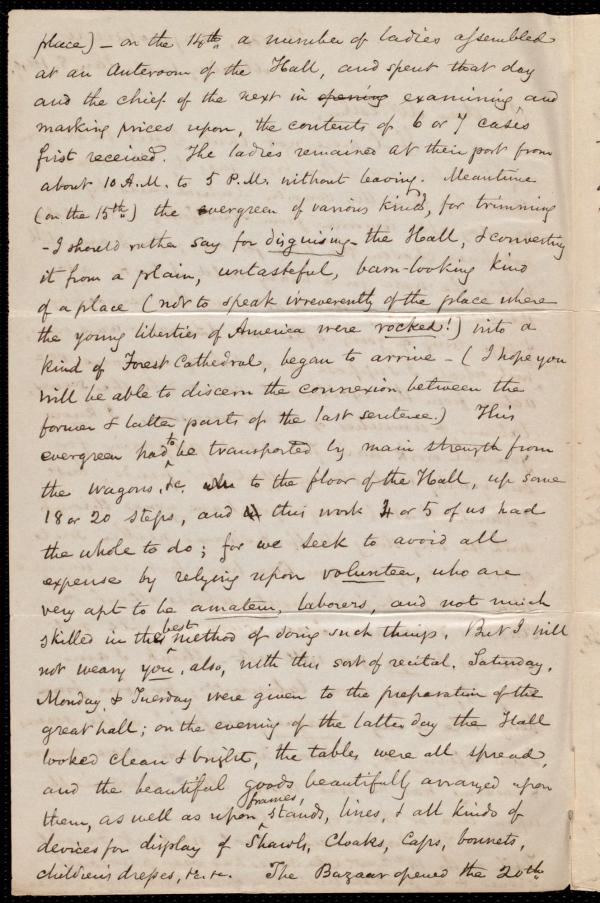 place) - on the 14th a number of ladies assembled
at an Anteroom of the Hall, and spent that day
and the chief of the next in opening examining, and
marking prices upon, the contents of 6 or 7 cases
first received. The ladies remained at their post from
about 10 A.M. to 5 P.M. without leaving. Meantime
(on the 15th) the evergreen of various kinds, for trimming
- I should rather say for disguising - the Hall, & converting
it from a plain, untasteful, barn-looking kind
of a place (not to speak irreverently of the place where
the young liberties of America were rocked!) into a
kind of Forest Cathedral, began to arrive - (I hope you
will be able to discern the connexion between the
former & latter parts of the last sentence.) This
evergreen had to be transported by main strength from
the wagons, &c. to the floor of the Hall, up some
18 or 20 steps, and this work 4 or 5 of us had
the whole to do; for we seek to avoid all
expense by relying upon volunteer, who are
very apt to be amateur, laborers, and not much
skilled in the best method of doing such things. But I will
not weary you, also, with this sort of recital. Saturday,
Monday, & Tuesday were given to the preparation of the
great hall; on the evening of the latter day the Hall
looked clean & bright, the tables were all spread,
and the beautiful goods beautifully arranged upon
them, as well as upon frames, stands, lines, & all kinds of
devices for display of Shawls, Cloaks, Caps, bonnets,
children's dresses, &c. &c. The Bazaar opened the 20th